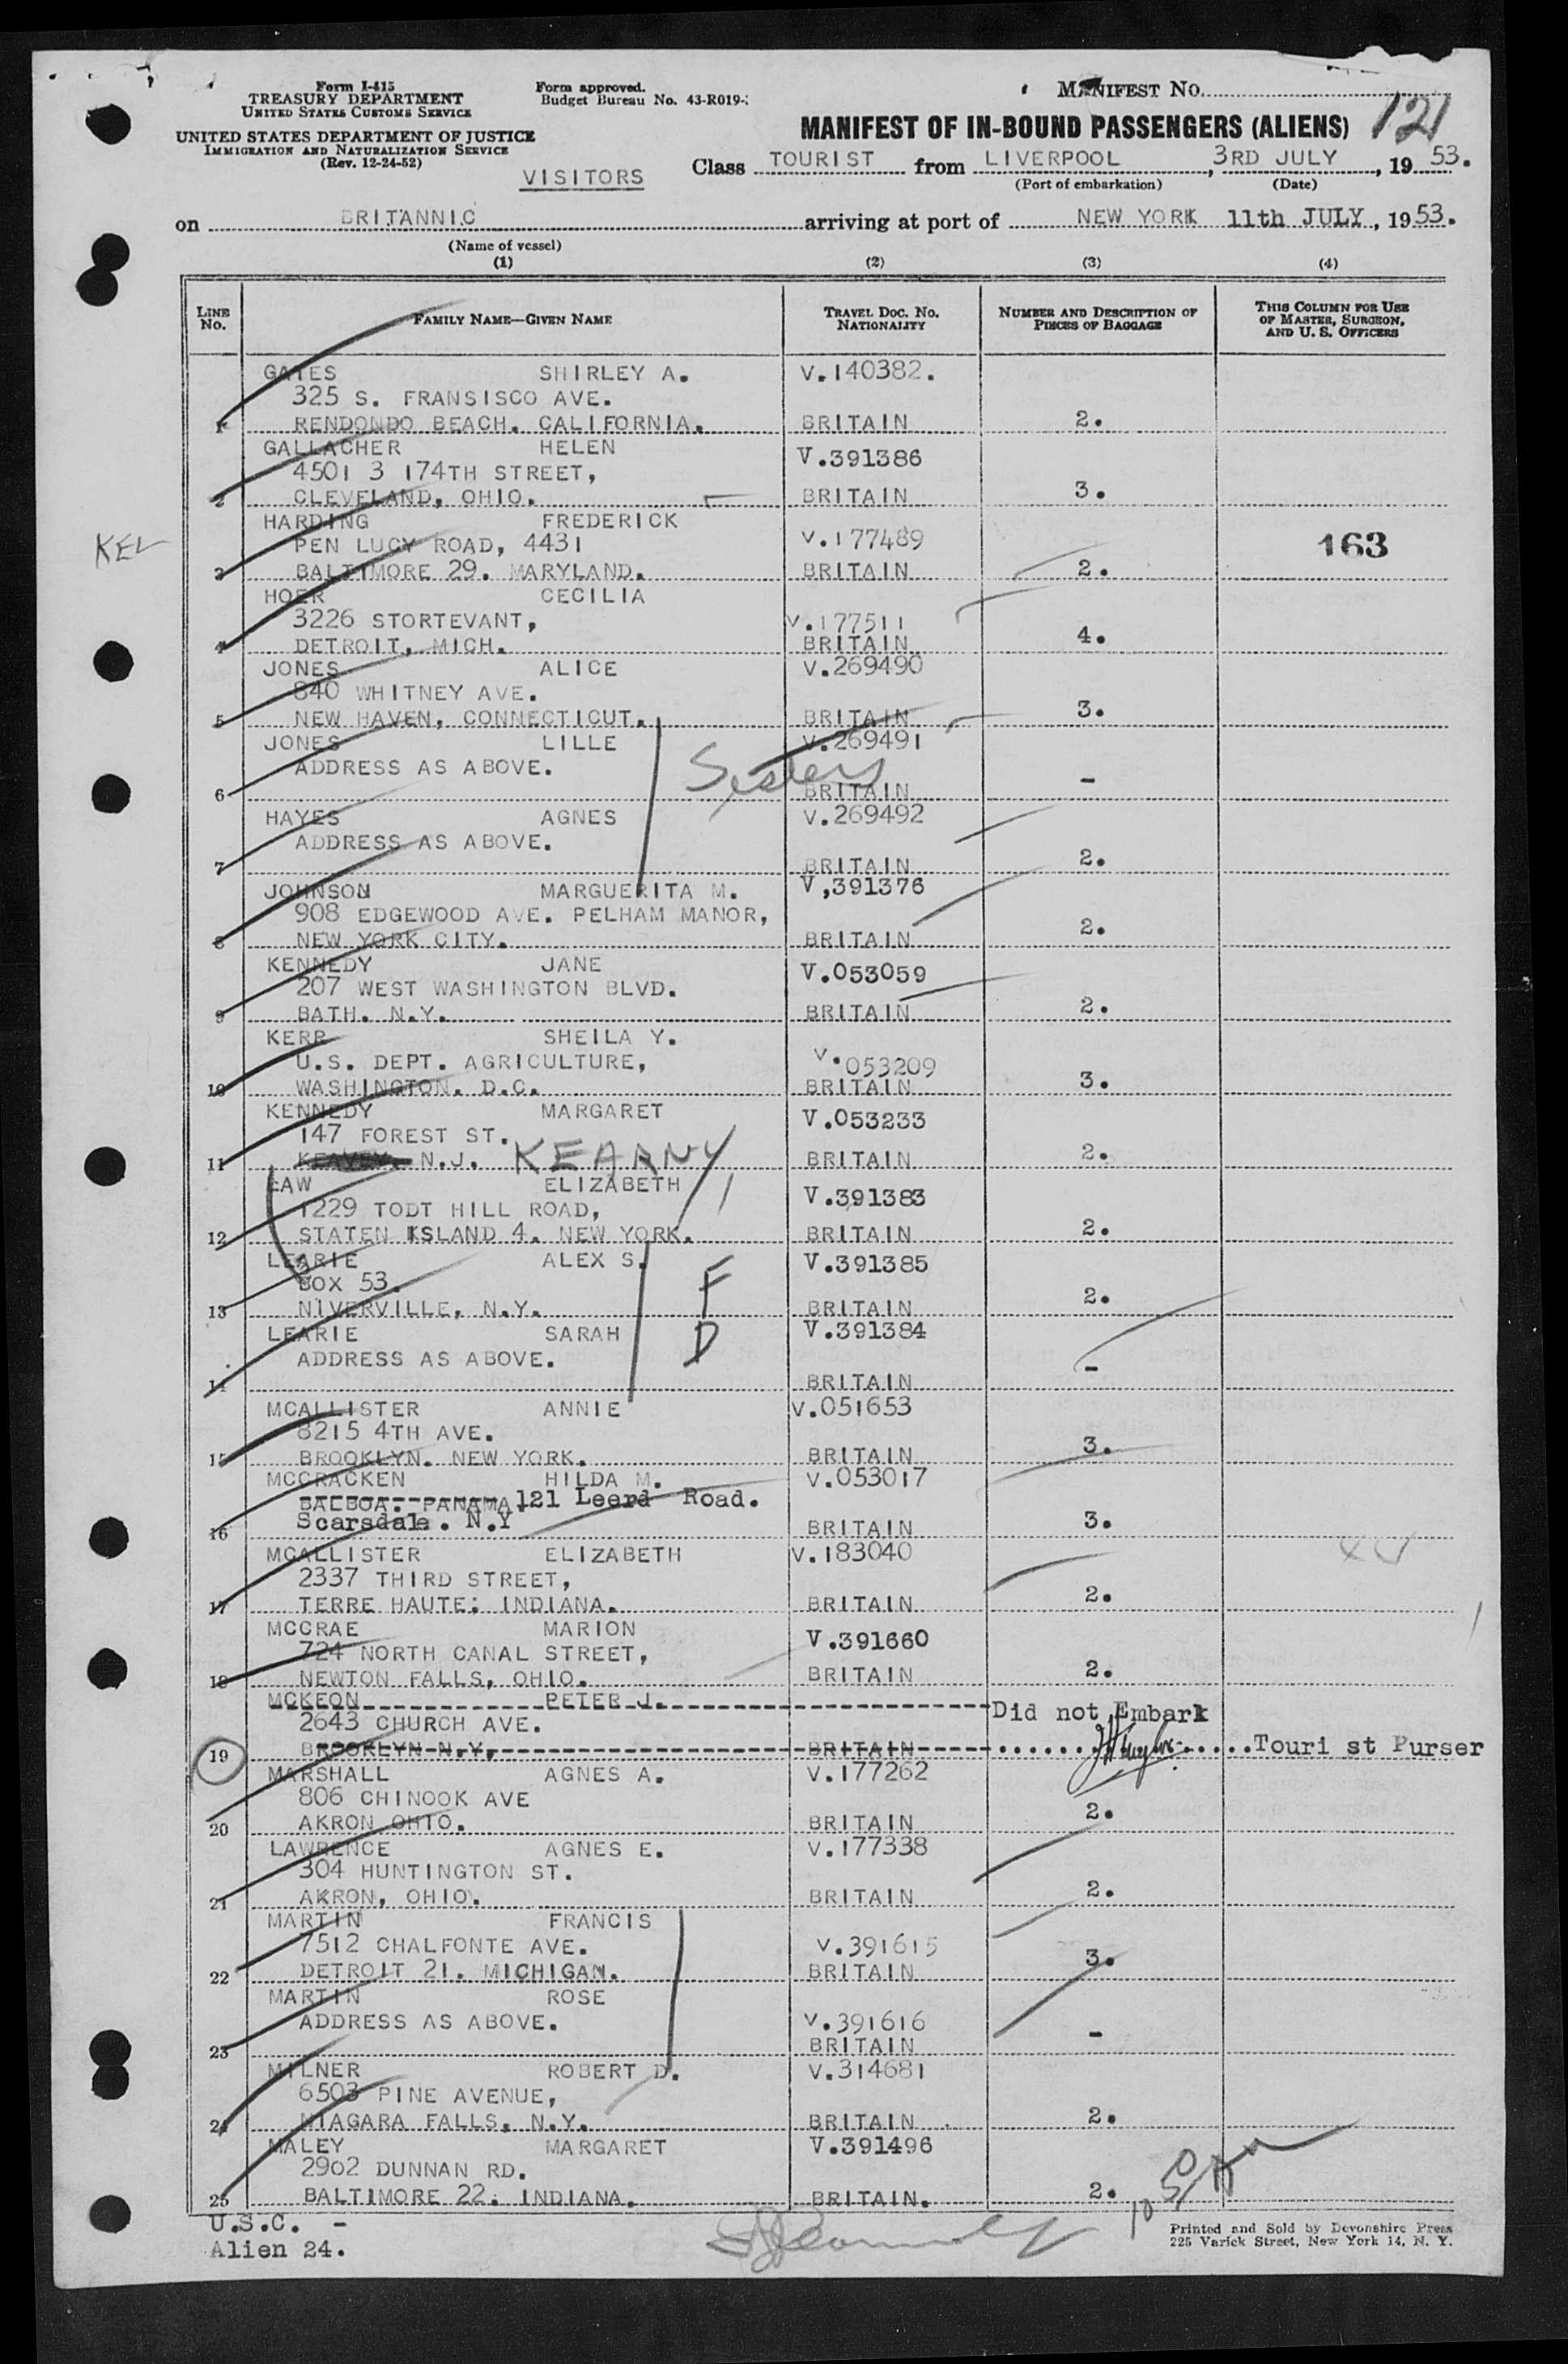 Form I-415
TREASURY DEPARTMENT
UNITED STATES CUSTOMS SERVICE
UNITED STATES DEPARTMENT OF JUSTICE
IMMIGRATION AND NATURALIZATION SERVICE
(Rev. 12-24-52)
Form approved.
Budget Bureau No. 43-R019-
VISITORS
MANIFEST NO.
121
MANIFEST OF IN-BOUND PASSENGERS (ALIENS)
Class TOURIST from LIVERPOOL, 3RD JULY, 1953.
(Port of embarkation) (Date)
on BRITANNIC arriving at port of NEW YORK 11th JULY, 1953.
(Name of vessel)
(1) (2) (3) (4)
LINE No. FAMILY NAME—GIVEN NAME TRAVEL DOC. NO. NATIONALITY NUMBER AND DESCRIPTION OF PIECES OF BAGGAGE THIS COLUMN FOR USE OF MASTER, SURGEON, AND U. S. OFFICERS
GATES SHIRLEY A. V.140382.
325 S. FRANSISCO AVE.
1 RENDONDO BEACH. CALIFORNIA. BRITAIN 2.
GALLACHER HELEN V.391386
4501 3 174TH STREET,
2 CLEVELAND, OHIO. BRITAIN 3.
HARDING FREDERICK
KEL PEN LUCY ROAD, 4431 V.177489 163
3 BALTIMORE 29. MARYLAND. BRITAIN 2.
HOER CECILIA
3226 STORTEVANT, V.177511
4 DETROIT, MICH. BRITAIN 4.
JONES ALICE V.269490
840 WHITNEY AVE.
5 NEW HAVEN, CONNECTICUT. BRITAIN 3.
JONES LILLE V.269491
ADDRESS AS ABOVE. Sisters
6 BRITAIN -
HAYES AGNES V.269492
ADDRESS AS ABOVE.
7 BRITAIN 2.
JOHNSON MARGUERITA M. V,391376
908 EDGEWOOD AVE. PELHAM MANOR,
8 NEW YORK CITY. BRITAIN 2.
KENNEDY JANE V.053059
207 WEST WASHINGTON BLVD.
9 BATH. N.Y. BRITAIN 2.
KERR SHEILA Y.
U.S. DEPT. AGRICULTURE, V.053209
10 WASHINGTON. D.C. BRITAIN 3.
KENNEDY MARGARET V.053233
147 FOREST ST.
11 KEAVEY. N.J. KEARNY BRITAIN 2.
LAW ELIZABETH V.391383
1229 TODT HILL ROAD,
12 STATEN ISLAND 4. NEW YORK. BRITAIN 2.
LEARIE ALEX S. V.391385
BOX 53. F
13 NIVERVILLE, N.Y. BRITAIN 2.
LEARIE SARAH D V.391384
ADDRESS AS ABOVE.
14 BRITAIN -
MCALLISTER ANNIE V.051653
8215 4TH AVE.
15 BROOKLYN. NEW YORK. BRITAIN 3.
MCCRACKEN HILDA M. V.053017
BALBOA. PANAMA. 121 Leerd Road.
16 Scarsdale. N.Y BRITAIN 3.
MCALLISTER ELIZABETH V.183040
2337 THIRD STREET,
17 TERRE HAUTE; INDIANA. BRITAIN 2.
MCCRAE MARION V.391660
724 NORTH CANAL STREET,
18 NEWTON FALLS, OHIO. BRITAIN 2.
MCKEON PETER J. Did not Embark
2643 CHURCH AVE.
19 BROOKLYN N.Y. BRITAIN Touri st Purser
MARSHALL AGNES A. V.177262
806 CHINOOK AVE
20 AKRON OHIO. BRITAIN 2.
LAWRENCE AGNES E. V.177338
304 HUNTINGTON ST.
21 AKRON, OHIO. BRITAIN 2.
MARTIN FRANCIS
7512 CHALFONTE AVE. V.391615
22 DETROIT 21. MICHIGAN. BRITAIN 3.
MARTIN ROSE
ADDRESS AS ABOVE. V.391616
23 BRITAIN -
MILNER ROBERT D. V.314681
6503 PINE AVENUE,
24 NIAGARA FALLS, N.Y. BRITAIN 2.
MALEY MARGARET V.391496
2902 DUNNAN RD.
25 BALTIMORE 22. INDIANA. BRITAIN. 2.
U.S.C. -
Alien 24.
Printed and Sold by Devonshire Press
225 Varick Street, New York 14, N. Y.